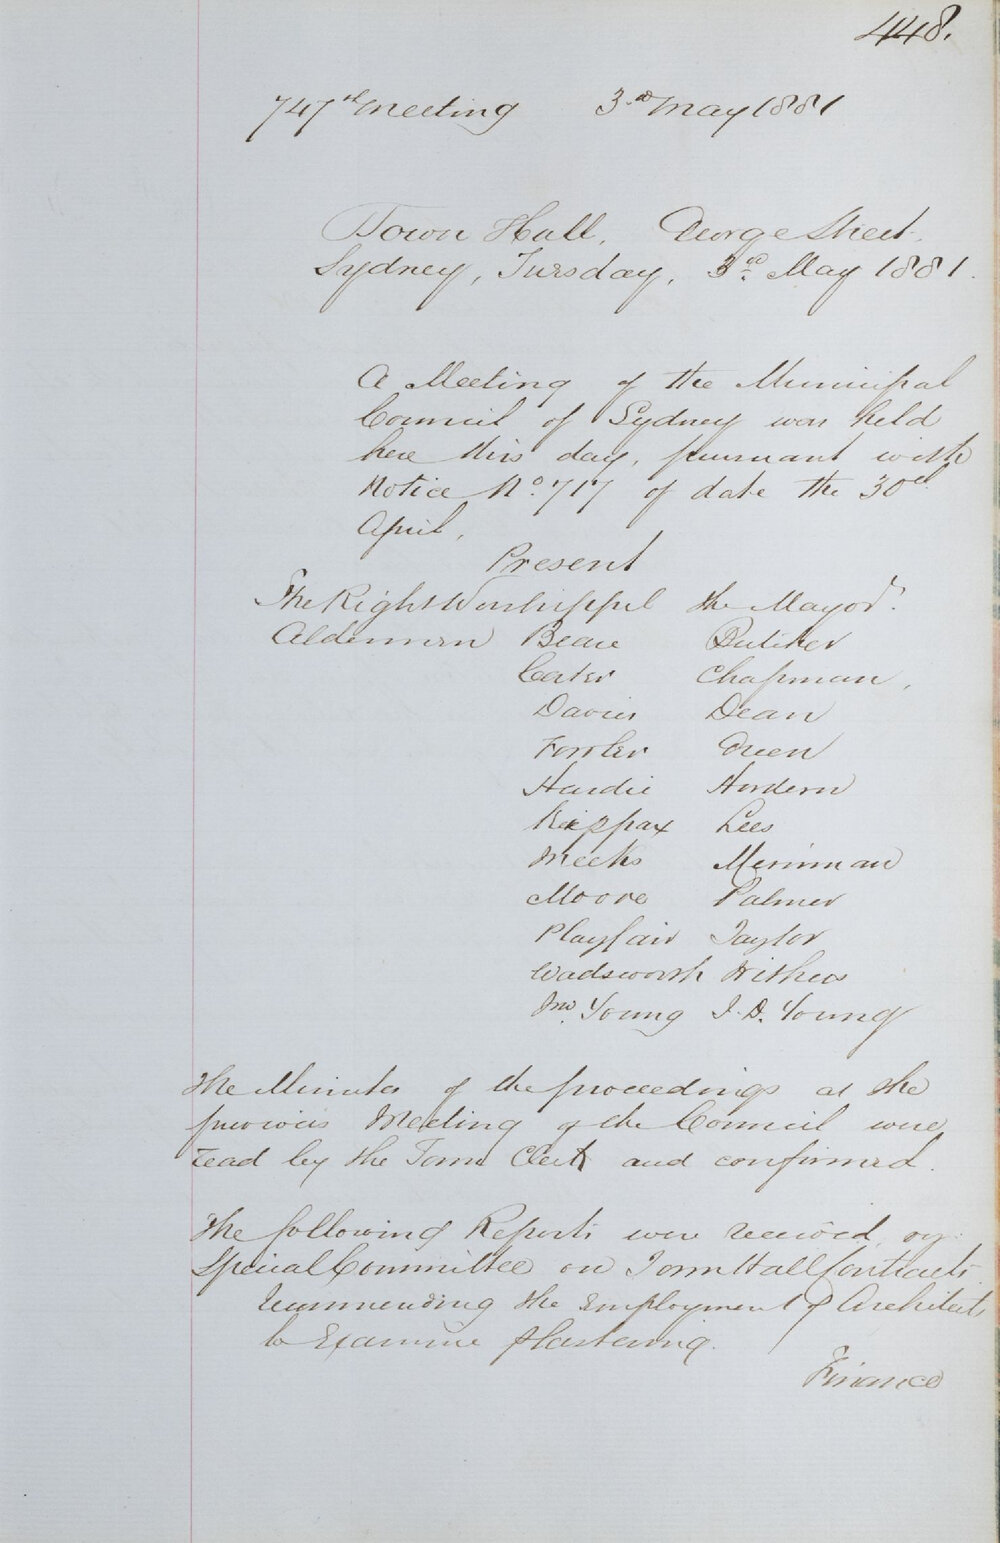 448.
747th Meeting 3rd May 1881
Town Hall, George Street.
Sydney, Tuesday, 3rd May 1881.
A Meeting of the Municipal
Council of Sydney was held
here this day, pursuant with
Notice No. 717 of date the 30th
April,
Present
The Right Worshipful the Mayor.
Aldermen Beare Butcher
Carter Chapman,
Davies Dean
Fowler Green
Hardie Hordern
Kippax Lees
Meeks Merriman
Moore Palmer
Playfair Taylor
Wadsworth Withers
Jno. Young J. D. Young
The Minutes of the proceedings at the
previous Meeting of the Council were
read by the Town Clerk and confirmed.
The following Reports were received,
Special Committee on Town Hall Contracts
recommending the employment of Architects
to Examine plastering.
Finance